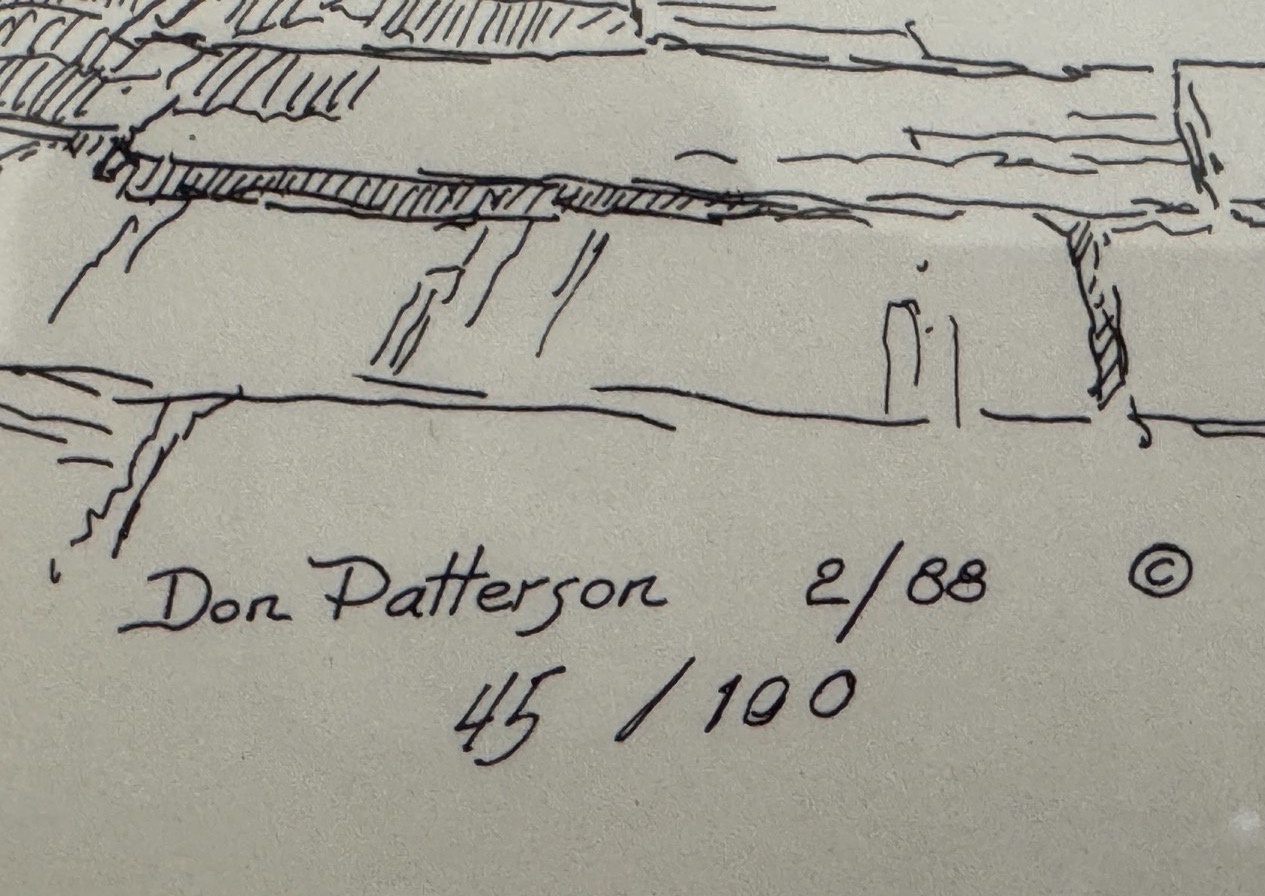 Don Patterson 2/88 ©
45 / 100